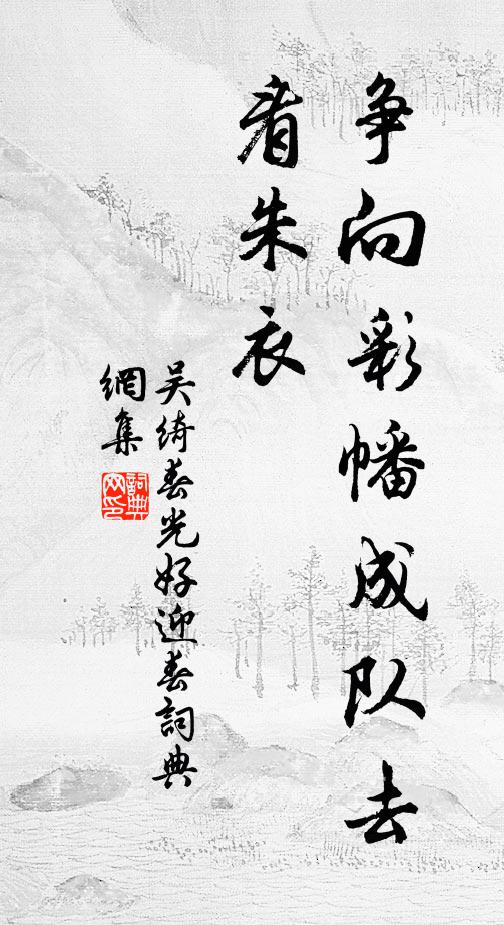 争向彩幡成队去
看朱衣
吴绮春光好迎春詞典
網集
詞典
网印